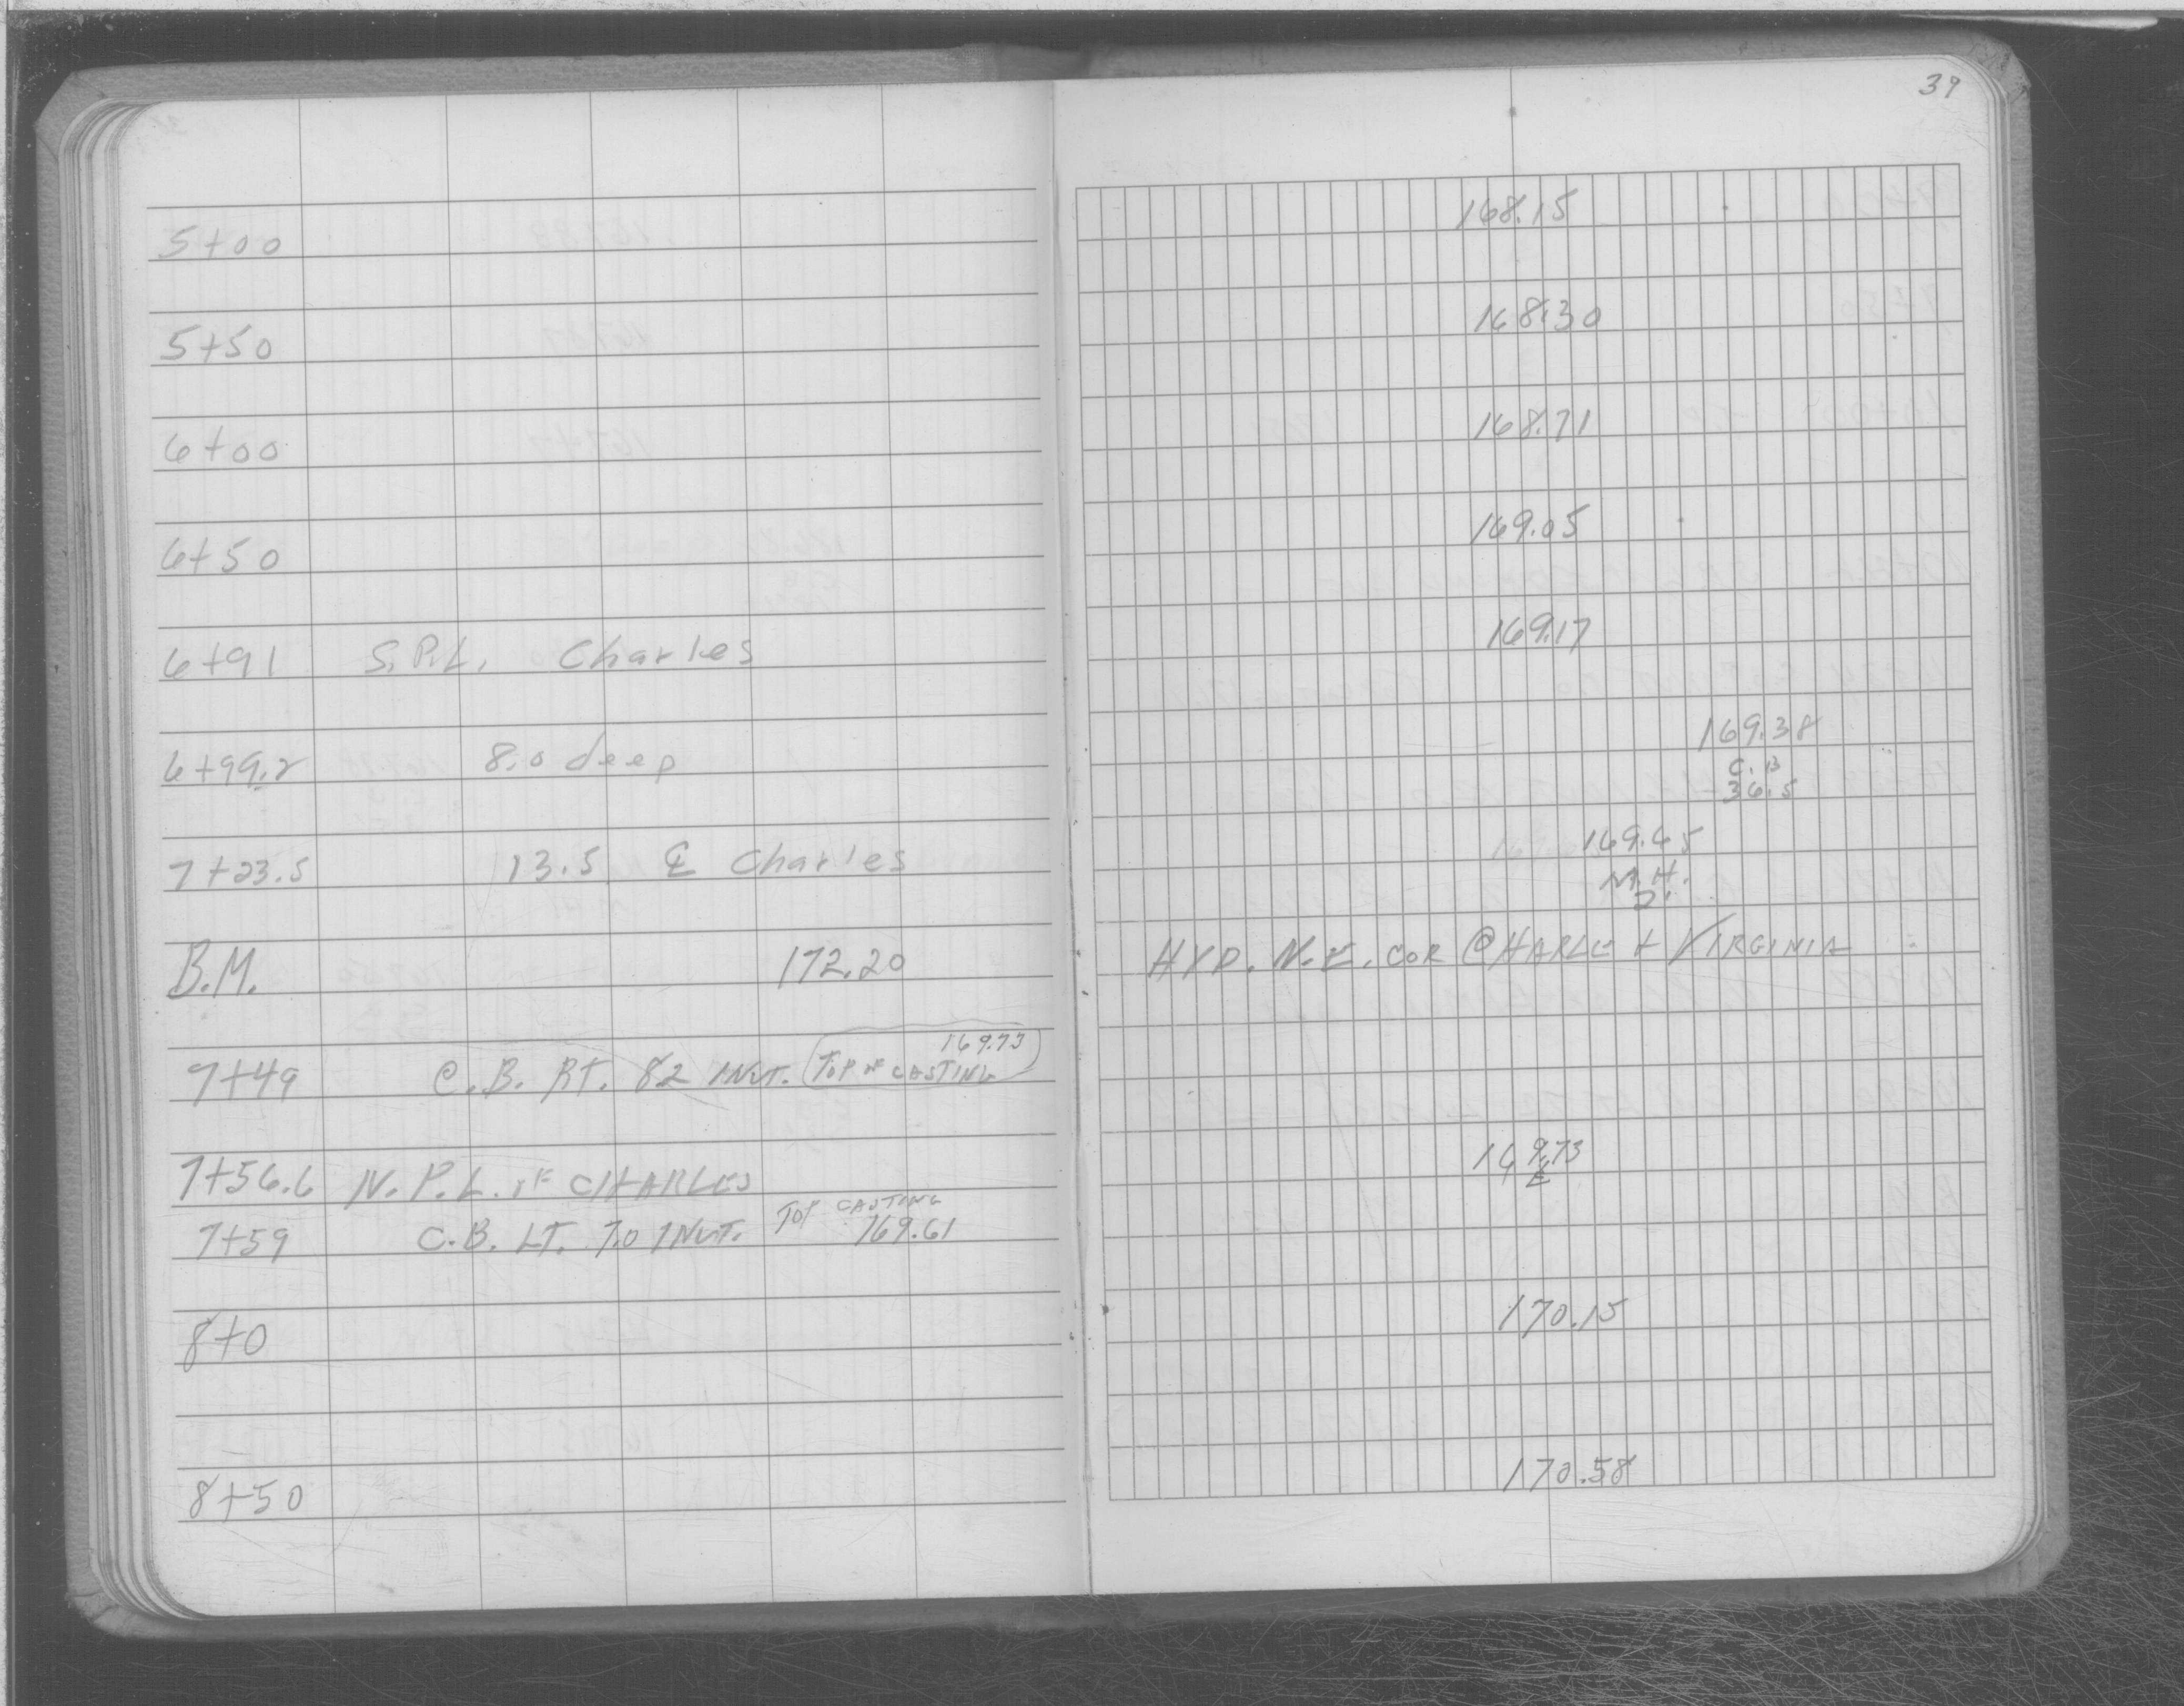 39
5+00 168.15
5+50 168.30
6+00 168.71
6+50 169.05
6+91 S.P.L. Charles 169.17
6+99.2 8.0 deep 169.38
C.B
36.5
7+23.5 13.5 ℄ Charles 169.65
M.H.
2'
B.M. 172.20 HYD. N.E. COR CHARLE + VIRGINIA
169.73
7+49 C.B. RT. 82 INVT. TOP OF CASTING
7+56.6 N.P.L. OF CHARLES 169.73
℄
TOP CASTING
7+59 C.B. LT. 7.0 INVT. 169.61
8+0 170.15
8+50 170.58